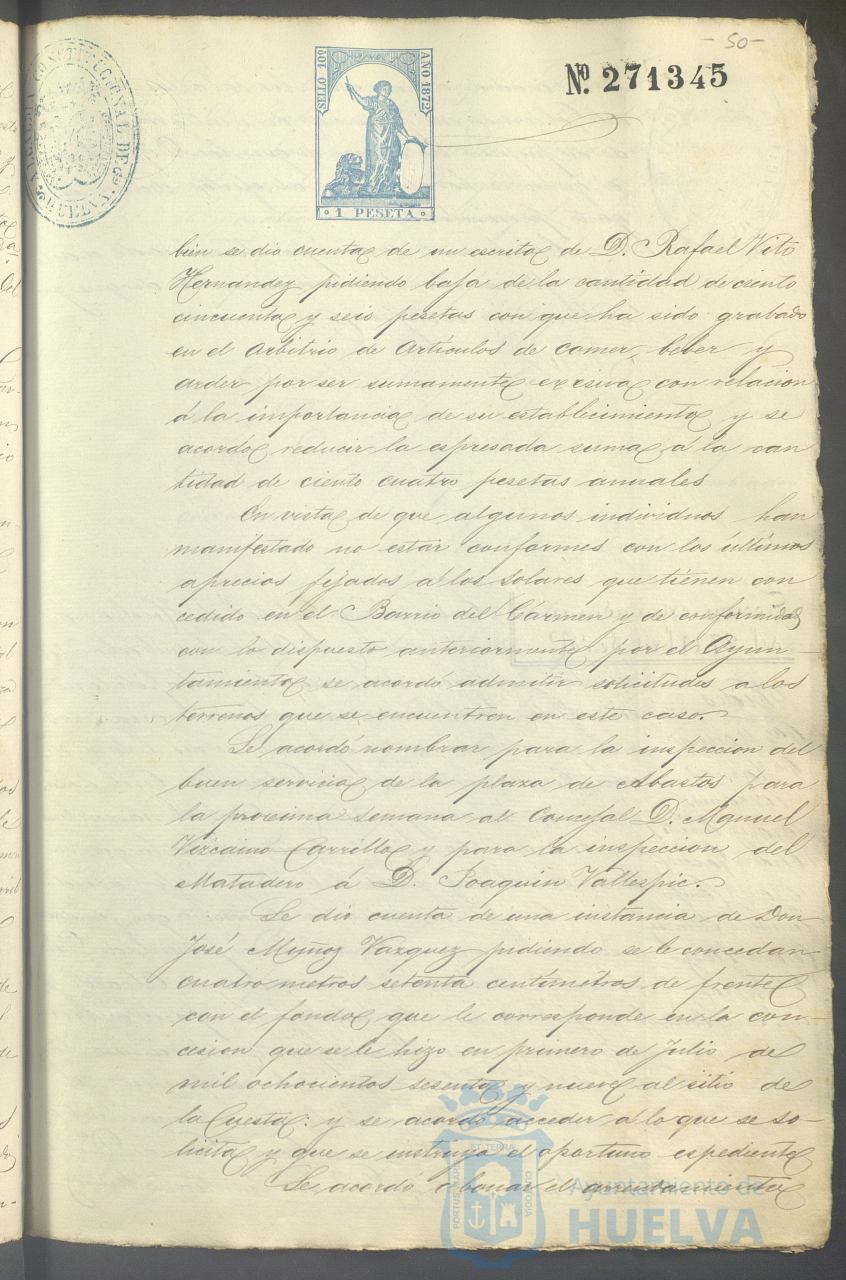 - 50 -
Nº. 271345
SELLO 10º
AÑO 1872
1 PESETA
CONSTITUCIONAL DE
HUELVA
bien se dió cuenta de un escrito de D. Rafael Vito
Hernandez pidiendo baja de la cantidad de ciento
cincuenta y seis pesetas con que ha sido grabado
en el arbitrio de Artículos de comer, beber y
arder por ser sumamente excesiva con relacion
á la importancia de su establecimiento y se
acordó reducir la espresada suma á la can
tidad de ciento cuatro pesetas anuales
En vista de que algunos individuos han
manifestado no estar conformes con los últimos
aprecios fijados á los Solares que tienen con
cedido en el Barrio del Cármen y de conformidad
con lo dispuesto anteriormente por el Ayun-
tamiento se acordó admitir solicitudes a los
terrenos que se encuentren en este caso.
Se acordó nombrar para la inspeccion del
buen servicio de la plaza de Abastos para
la procsima semana al Concejal D. Manuel
Vizcaino Carrillo y para la inspeccion del
Matadero á D. Joaquin Vallespic.
Se dió cuenta de una instancia de Don
José Muñoz Vazquez pidiendo se le concedan
cuatro metros setenta centímetros de frente
con el fondo que le corresponde en la con-
cesion que se le hizo en primero de Julio de
mil ochocientos sesenta y nueve al sitio de
la Cuesta: y se acordó acceder a lo que se so-
licita y que se instruya el oportuno espediente
Se acordó abonar el arrendamiento
PORTUS MARIS
ET TERRE
CUSTODIA
Ayuntamiento de
HUELVA